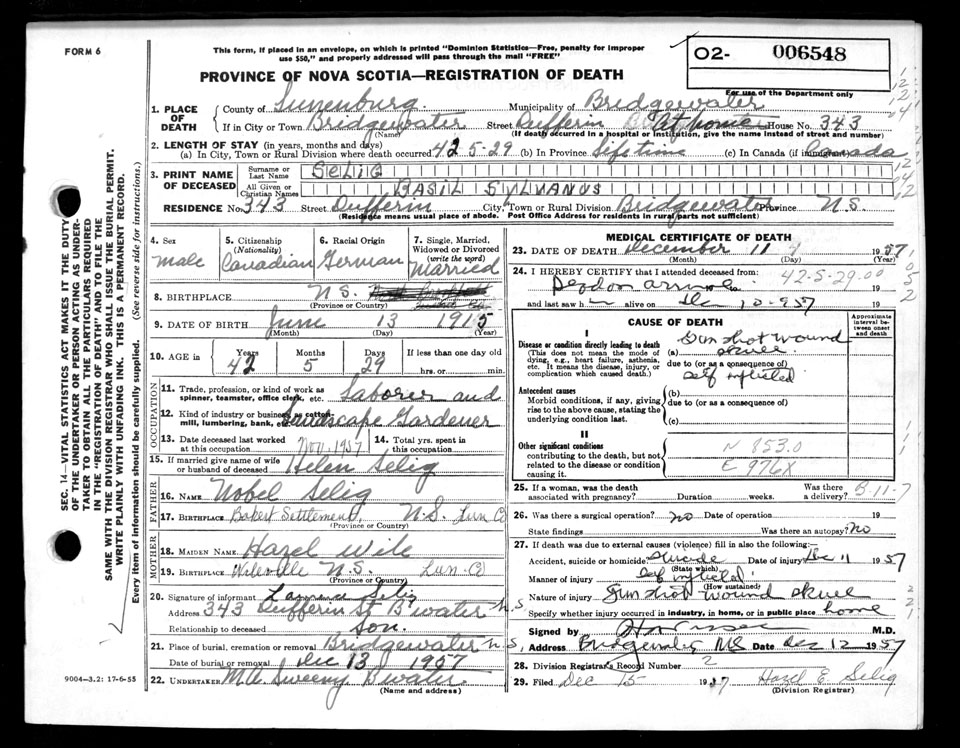 FORM 6
This form, if placed in an envelope, on which is printed "Dominion Statistics—Free, penalty for improper
use $50," and properly addressed will pass through the mail "FREE"
PROVINCE OF NOVA SCOTIA—REGISTRATION OF DEATH
02- 006548
For use of the Department only
1. PLACE OF DEATH
County of Lunenburg. Municipality of Bridgewater
If in City or Town Bridgewater Street Dufferin At home House No. 343
(Name) (If death occurred in a hospital or institution, give the name instead of street and number)
2. LENGTH OF STAY (in years, months and days)
(a) In City, Town or Rural Division where death occurred 42-5-29 (b) In Province Lifetime (c) In Canada (if immigrant) Canada
3. PRINT NAME OF DECEASED
Surname or Last Name SELIG
All Given or Christian Names BASIL SYLVANUS
RESIDENCE No. 343 Street Dufferin City, Town or Rural Division Bridgewater Province N.S.
(Residence means usual place of abode. Post Office Address for residents in rural parts not sufficient)
4. Sex
Male
5. Citizenship (Nationality)
Canadian
6. Racial Origin
German
7. Single, Married, Widowed or Divorced (write the word)
Married
8. BIRTHPLACE N.S.
(Province or Country)
9. DATE OF BIRTH June 13 1915
(Month) (Day) (Year)
10. AGE in Years 42 Months 5 Days 29 If less than one day
hrs. or min.
OCCUPATION
11. Trade, profession, or kind of work as spinner, teamster, office clerk, etc. Laborer and
12. Kind of industry or business, as cotton-mill, lumbering, bank, etc. Landscape Gardener
13. Date deceased last worked at this occupation Nov. 1957
14. Total yrs. spent in this occupation
15. If married give name of wife or husband of deceased Helen Selig
FATHER
16. NAME Nobel Selig
17. BIRTHPLACE Baker Settlement, N.S. Lun Co
(Province or Country)
MOTHER
18. MAIDEN NAME Hazel Wile
19. BIRTHPLACE Wileville N.S. Lun. Co
(Province or Country)
20. Signature of informant Selig
Address 343 Dufferin St B'water N.S
Relationship to deceased Son.
21. Place of burial, cremation or removal Bridgewater N.S
Date of burial or removal Dec 13 1957
22. UNDERTAKER M.A. Sweeny B'water
(Name and address)
9004—3.2: 17-6-55
MEDICAL CERTIFICATE OF DEATH
23. DATE OF DEATH December 11 1957
(Month) (Day) (Year)
24. I HEREBY CERTIFY that I attended deceased from: 42-5-29.00
Dead on arrival 19
and last saw h alive on Dec 10 - 957
CAUSE OF DEATH
Approximate interval between onset and death
I
Disease or condition directly leading to death
(This does not mean the mode of dying, e.g., heart failure, asthenia, etc. It means the disease, injury, or complication which caused death.)
(a) Gun shot wound skull
due to (or as a consequence of)
self inflicted
Antecedent causes
Morbid conditions, if any, giving rise to the above cause, stating the underlying condition last.
(b)
due to (or as a consequence of)
(c)
II
Other significant conditions contributing to the death, but not related to the disease or condition causing it.
N 853.0
E 976X
25. If a woman, was the death associated with pregnancy? Duration weeks. Was there a delivery? B-11-7
26. Was there a surgical operation? no Date of operation 19
State findings Was there an autopsy? No
27. If death was due to external causes (violence) fill in also the following:—
Accident, suicide or homicide: Suicide Date of injury Dec 11 1957
(State which)
Manner of injury self inflicted
(How sustained)
Nature of injury Gun shot wound skull
Specify whether injury occurred in industry, in home, or in public place home
Signed by M.D.
Address Bridgewater, NS Date Dec 12 1957
28. Division Registrar's Record Number 2
29. Filed Dec 15 1957 Hazel E. Selig
(Division Registrar)
SEC. 14—VITAL STATISTICS ACT MAKES IT THE DUTY
OF THE UNDERTAKER OR PERSON ACTING AS UNDER-
TAKER TO OBTAIN ALL THE PARTICULARS REQUIRED
IN THE "REGISTRATION OF DEATH" AND TO FILE THE
SAME WITH THE DIVISION REGISTRAR WHO SHALL ISSUE THE BURIAL PERMIT.
WRITE PLAINLY WITH UNFADING INK. THIS IS A PERMANENT RECORD.
Every item of information should be carefully supplied. (See reverse side for instructions.)